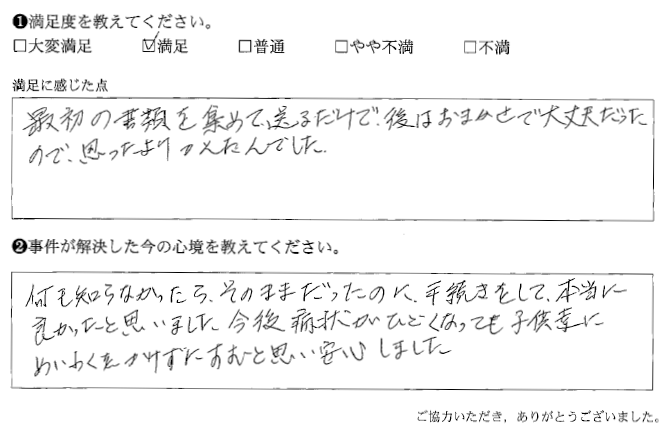 ❶満足度を教えてください。
□大変満足 ☑満足 □普通 □やや不満 □不満
満足に感じた点
最初の書類を集めて、送るだけで、後はおまかせで大丈夫だった
ので、思ったよりかんたんでした。
❷事件が解決した今の心境を教えてください。
何も知らなかったら、そのままだったのに、手続きをして、本当に
良かったと思いました。今後病状がひどくなっても子供達に
めいわくをかけずにすむと思い安心しました
ご協力いただき，ありがとうございました。